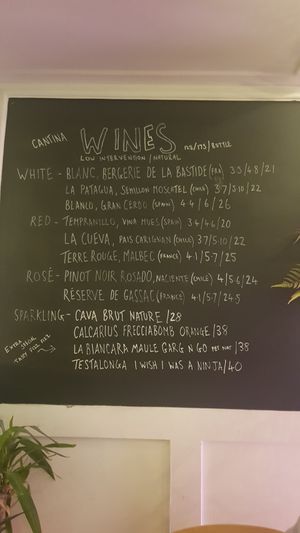 CANTINA WINES 125/175/BOTTLE
LOW INTERVENTION/NATURAL
WHITE - BLANC, BERGERIE DE LA BASTIDE (FRA) 3.5/4.8/21
LA PATAGUA, SEMILLON MOSCATEL (CHILE) 3.7/5.10/22
BLANCO, GRAN CERDO (SPAIN) 4.4/6/26
RED - TEMPRANILLO, VINA MUES (SPAIN) 3.4/4.6/20
LA CUEVA, PAIS CARIGNAN (CHILE) 3.7/5.10/22
TERRE ROUGE, MALBEC (FRANCE) 4.1/5.7/25
ROSÈ - PINOT NOIR ROSADO, NACIENTE (CHILE) 4/5.6/24
RÉSERVE DE GASSAC (FRANCE) 4.1/5.7/24.5
SPARKLING - CAVA BRUT NATURE /28
CALCARIUS FRECCIABOMB ORANGE /38
EXTRA
LA BIANCARA MAULE GARG N GO PET NAT /38
TESTALONGA I WISH I WAS A NINJA /40